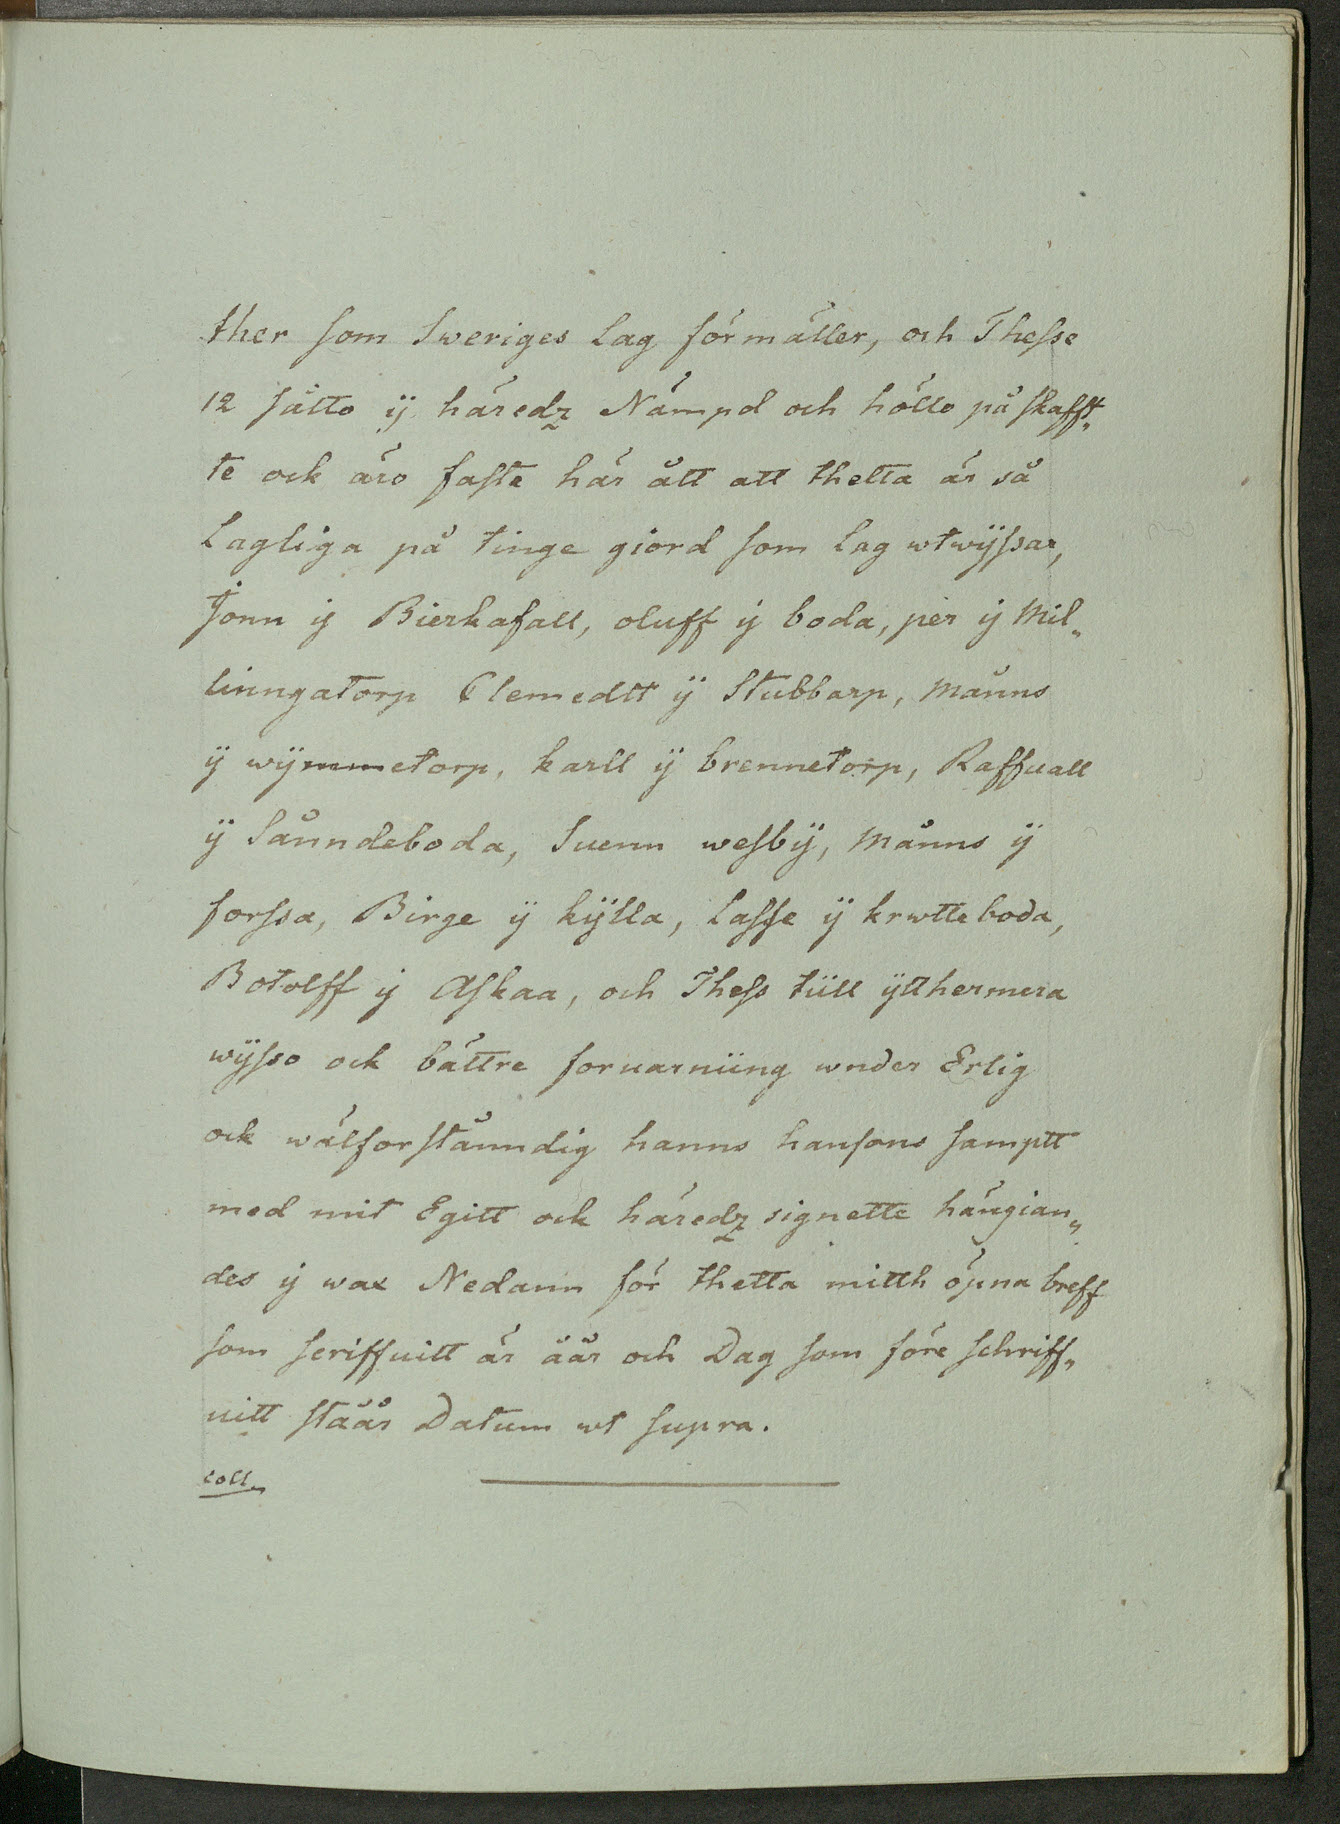 ther som Sweriges Lag förmäller, och Thesse
12 såtto ÿ häredz Nämpd och höllo på skafft„
te ock äro faste här ått att thetta är så
Lagliga på tinge giord som Lag wtwÿssar,
Jonn ÿ Bierkafall, oluff ÿ boda, per ÿ Mil„
linngatorp Clemedtt ÿ Stubbarp, Månns
ÿ wÿmmetorp, karll ÿ brennetorp, Raffuall
ÿ Sånndeboda, Suenn wesbÿ, Månns ÿ
forssa, Birge ÿ kÿlla, Lasse ÿ krwtteboda,
Botolff ÿ Askaa, och Thess tüll ÿtthermera
wÿsso ock bättre foruarniing wnder Erlig
ock wälforstånndig hanns hansons samptt
med mit Egitt ock häredz signette hängian„
des ÿ wax Nedann för thetta mitth öpna breff
som scriffuitt är äår och Dag som före schriff„
uitt stäår Datum wt supra.
coll.